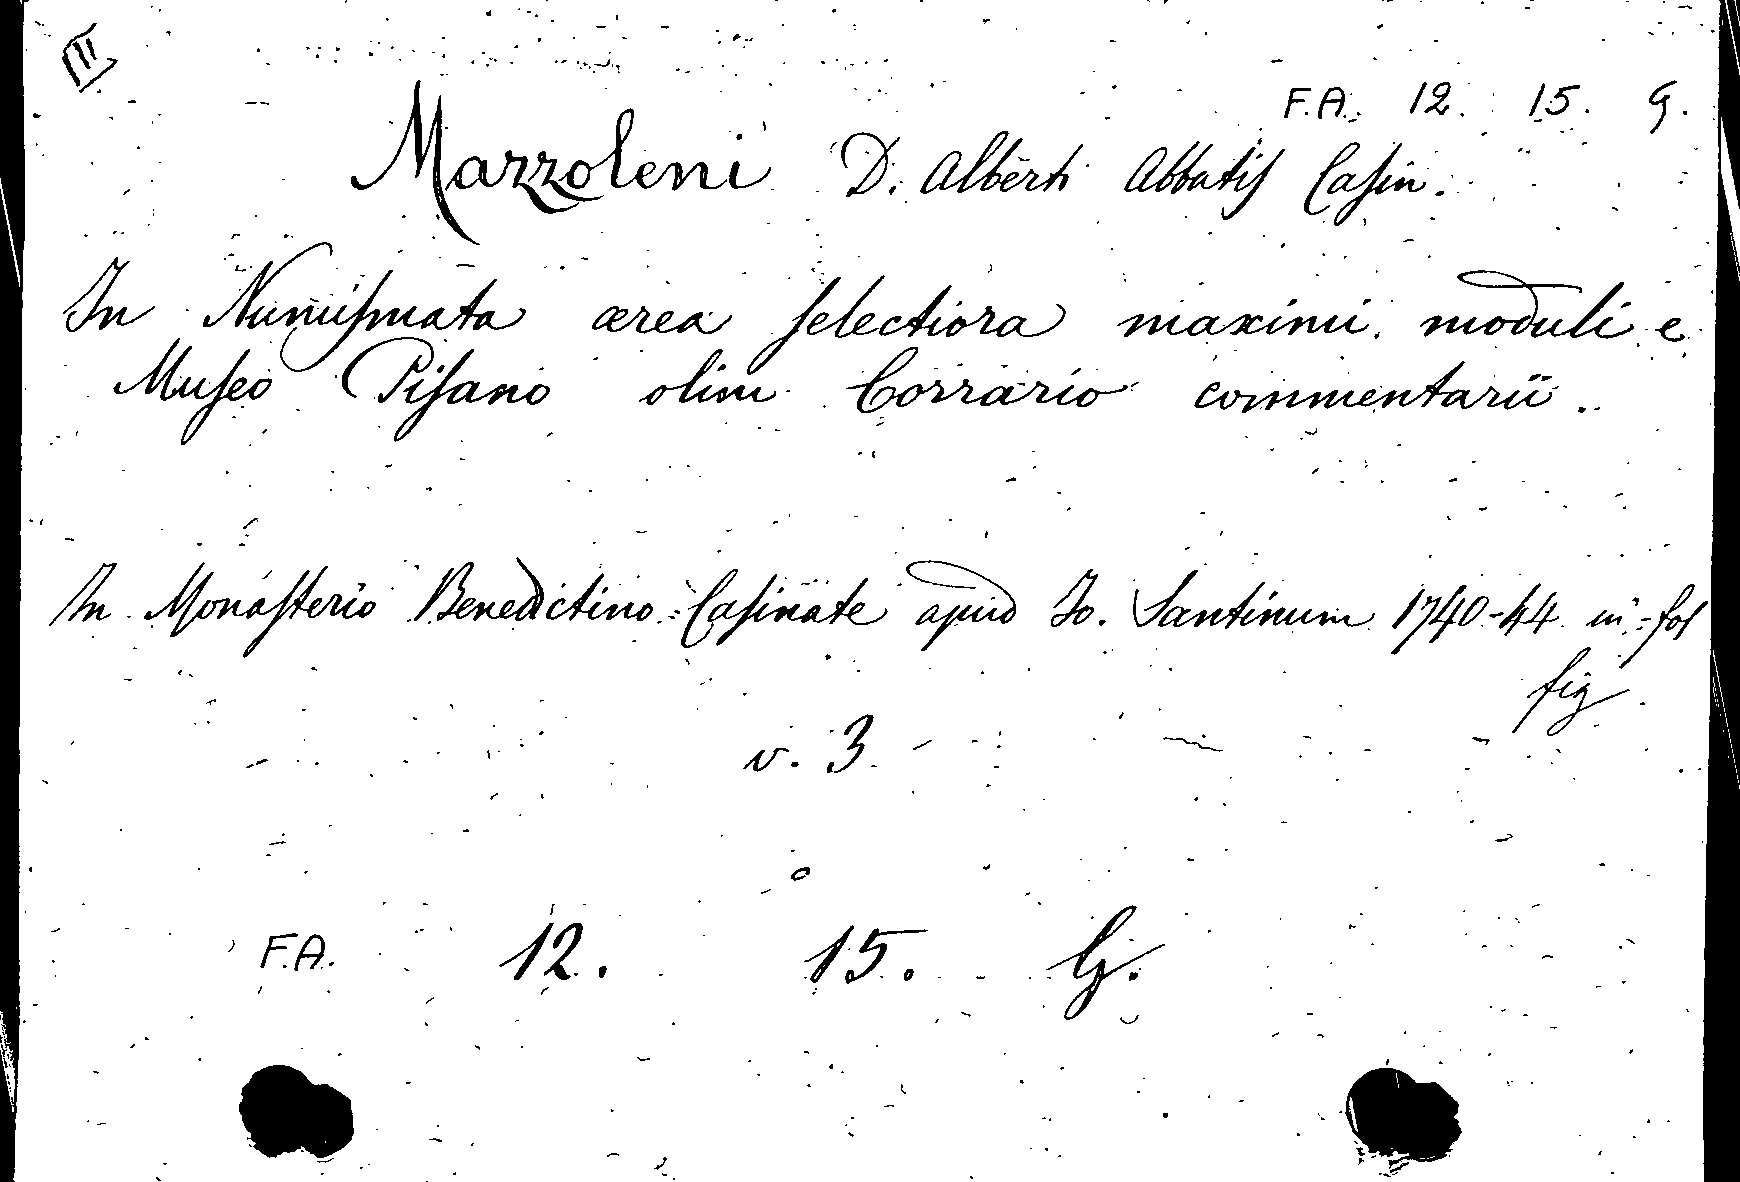 II
F.A. 12. 15. G.
Mazzoleni D. Alberti Abbatis Casin.
In Numiſmata ærea ſelectiora maximi moduli e
Muſeo Piſano olim Corrario commentarii.
In Monaſterio Benedictino-Caſinate apud Jo. Santinum 1740-44 in-fol
fig
v. 3.
F.A. 12. 15. G.